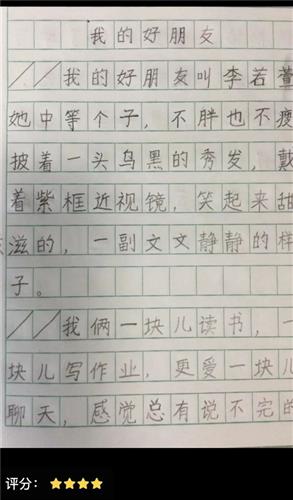 我的好朋友
我的好朋友叫李若萱
她中等个子，不胖也不瘦
披着一头乌黑的秀发，戴
着紫框近视镜，笑起来甜
滋的，一副文文静静的样
子。
我俩一块儿读书，一
块儿写作业，更爱一块儿
聊天，感觉总有说不完的
评分：